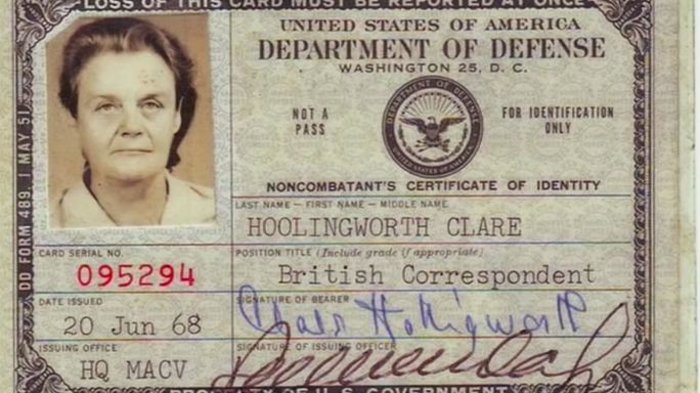 LOSS OF THIS CARD MUST BE REPORTED AT ONCE
UNITED STATES OF AMERICA
DEPARTMENT OF DEFENSE
WASHINGTON 25, D. C.
NOT A
PASS
DEPARTMENT OF DEFENSE
UNITED STATES OF AMERICA
FOR IDENTIFICATION
ONLY
NONCOMBATANT'S CERTIFICATE OF IDENTITY
LAST NAME — FIRST NAME — MIDDLE NAME
HOOLINGWORTH CLARE
CARD SERIAL NO.
095294
POSITION TITLE (Include grade if appropriate)
British Correspondent
DATE ISSUED
20 Jun 68
SIGNATURE OF BEARER
Clare Hollingworth
ISSUING OFFICE
HQ MACV
SIGNATURE OF ISSUING OFFICER
PROPERTY OF U. S. GOVERNMENT
DD FORM 489, 1 MAY 51